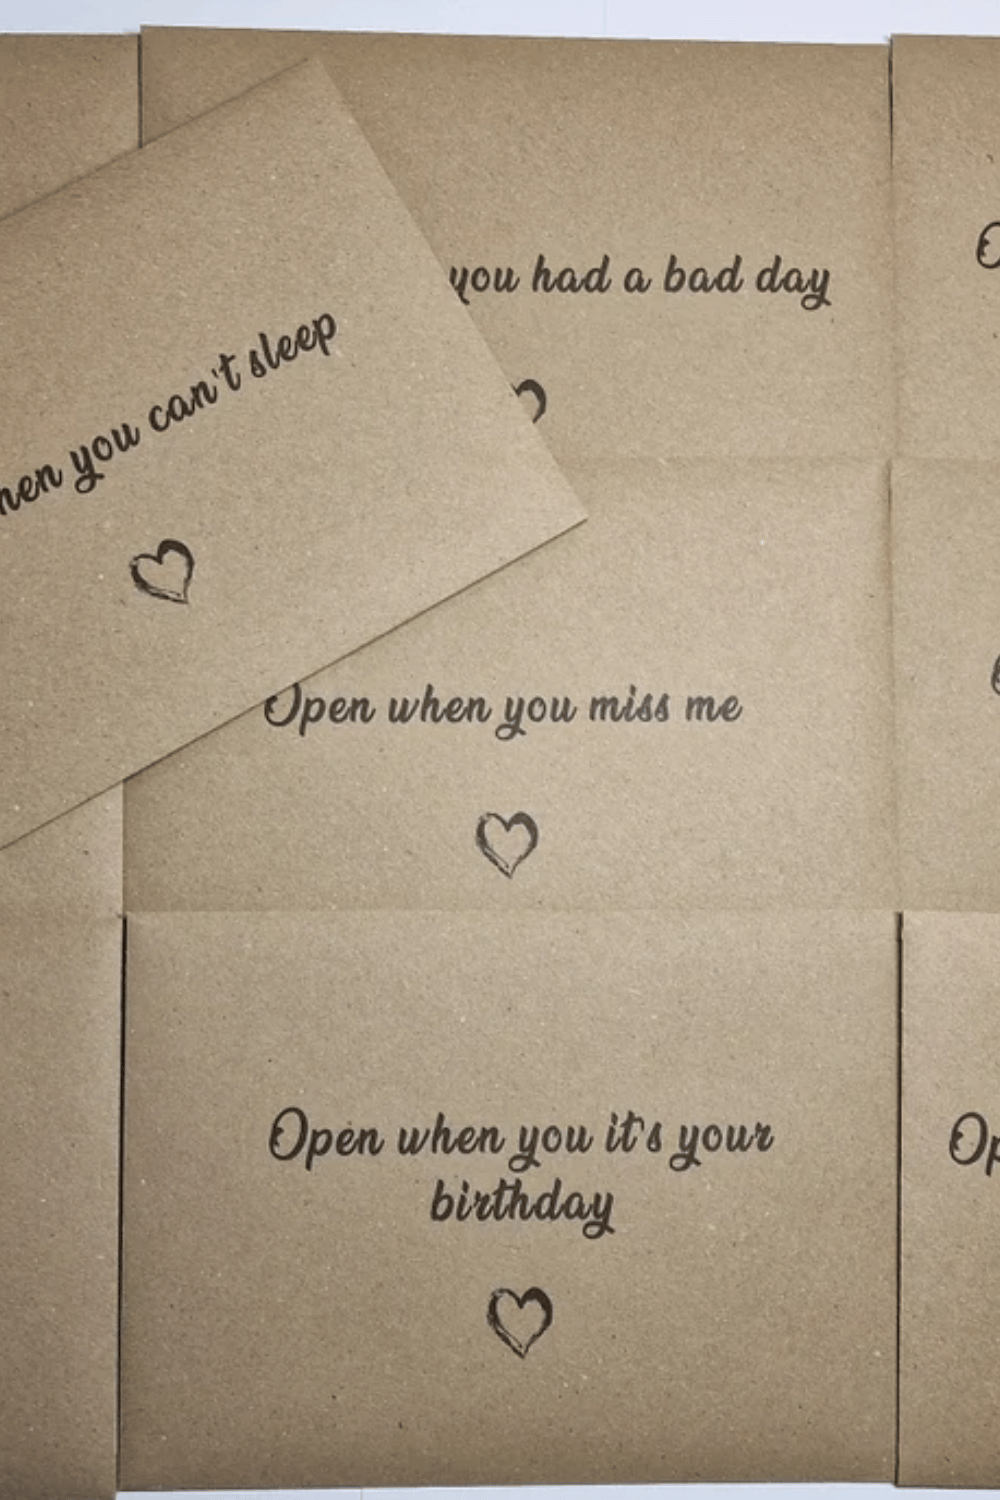 you had a bad day
you can't sleep
Open when you miss me
Open when you it's your
birthday